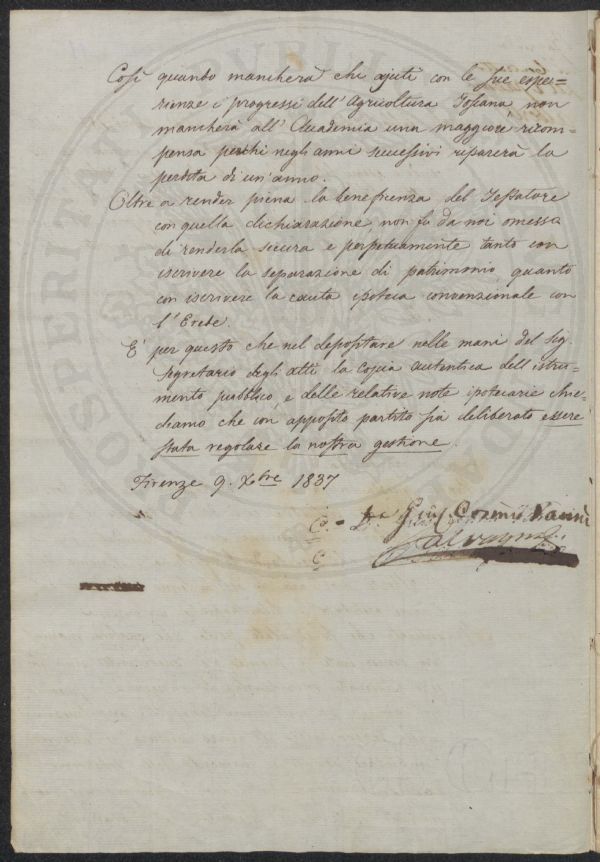 Così quando mancherà chi ajuti con le sue espe=
rienze i progressi dell'Agricoltura Tosana non
mancherà all'Accademia una maggiore ricom=
pensa perchi negli anni successivi riparerà la
perdita di un'anno.
Oltre a render piena la beneficenza del Testatore
con quella dichiarazione, non fu da noi omesso
di renderla sicura e perpetuamente tanto con
iscrivere la separazione di patrimonio quanto
con iscrivere la cauta ipoteca convenzionale con
l'Erede.
E' per questo che nel depositare nelle mani del Sig.
Segretario degli atti la copia autentica dell'istru=
mento pubblico, e delle relative note ipotecarie chie=
diamo che con apposito partito sia deliberato essere
stata regolare la nostra gestione.
Firenze 9. Xbre 1837
C. D. Cosimo Vanni
C
PROSPERITATI PVBLI